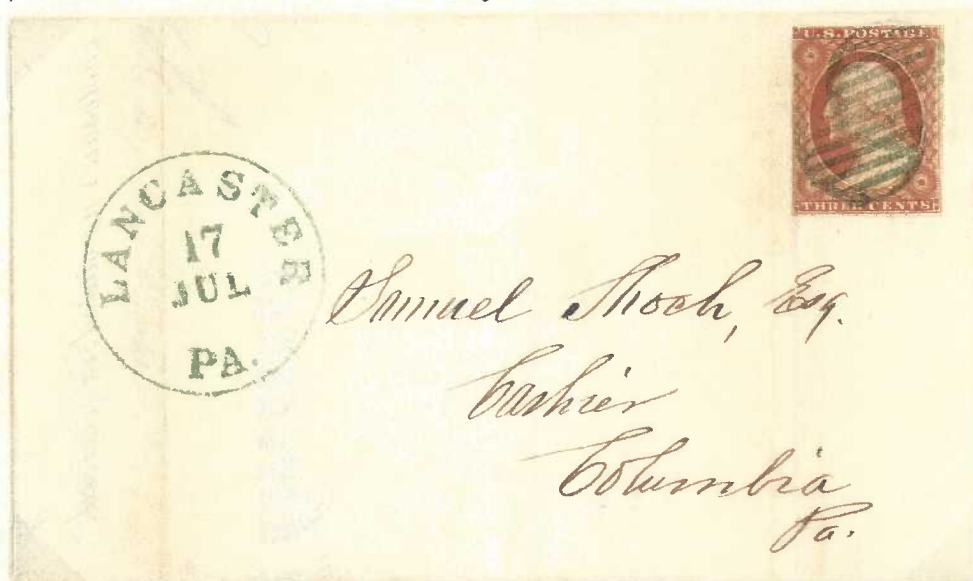 U.S. POSTAGE
THREE CENTS
LANCASTER
17
JUL
PA.
Samuel Shoch, Esq.
Cashier
Columbia
Pa.